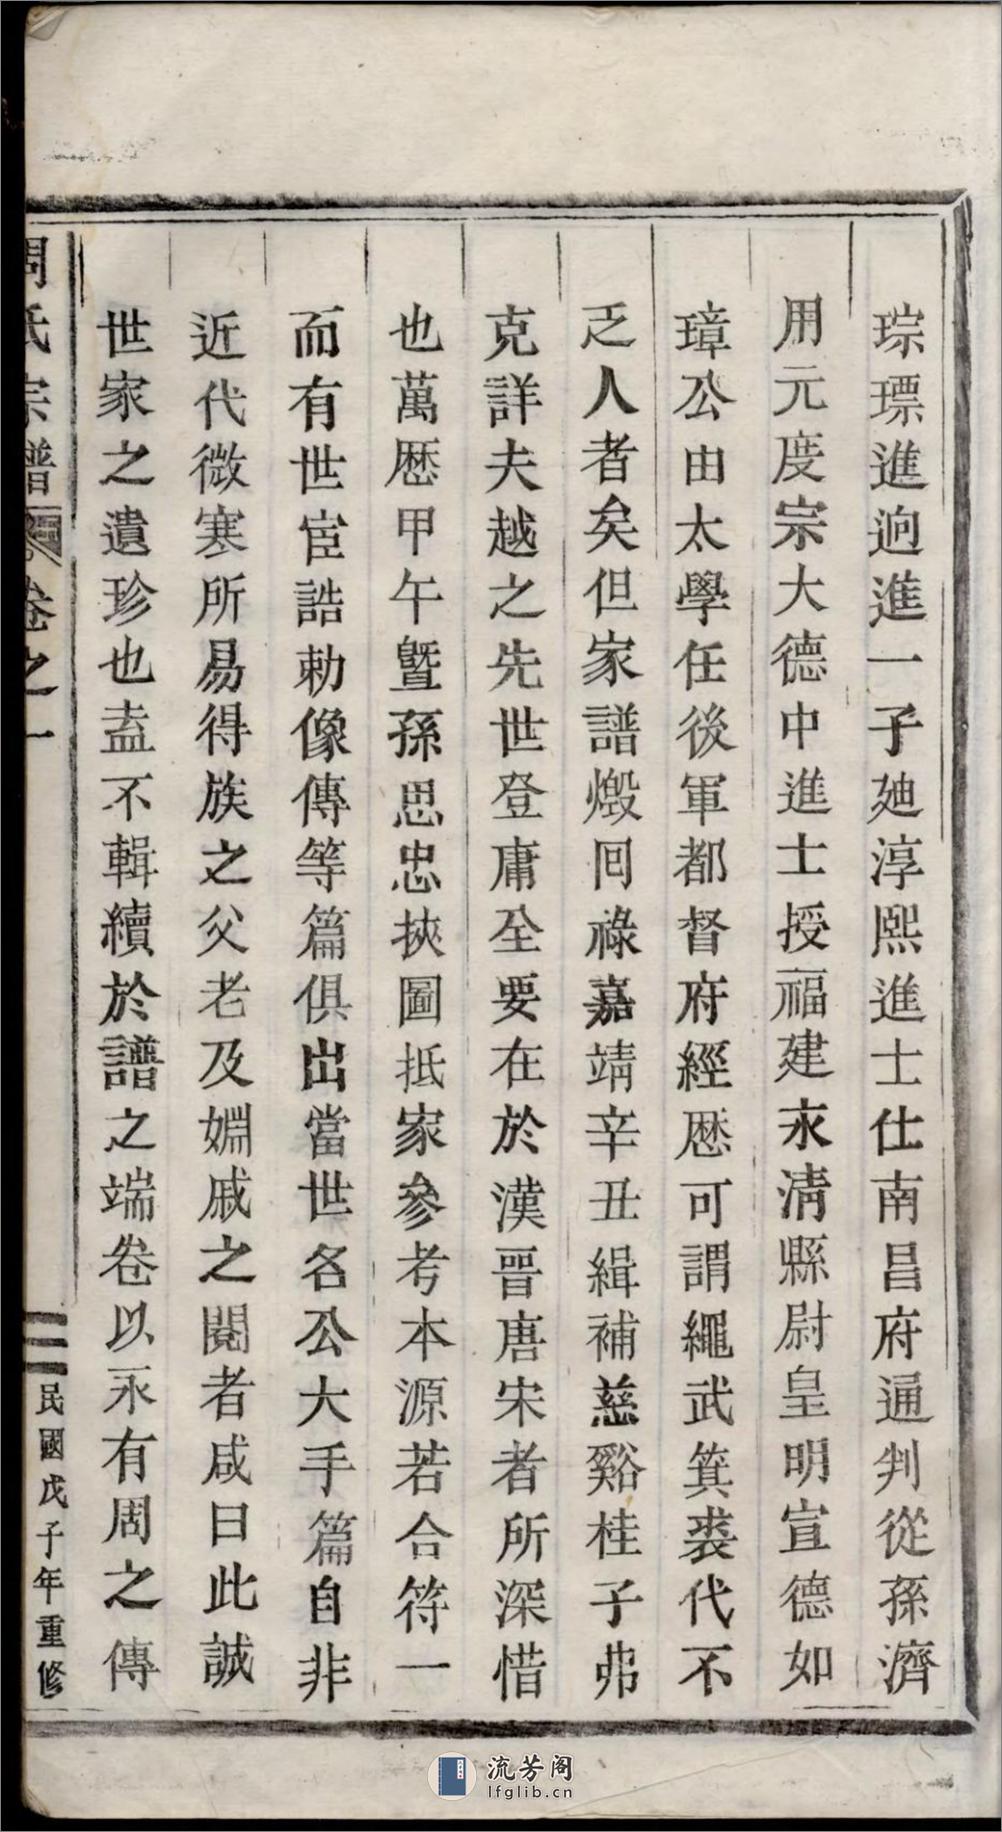 琮瓢進逈進一子廸淳熙進士仕南昌府通判從孫濟
用元度宗大德中進士授福建永清縣尉皇明宣德如
璋公由太學任後軍都督府經厯可謂繩武箕裘代不
乏人者矣但家譜燬囘祿嘉靖辛丑緝補慈谿桂子弗
克詳夫越之先世登庸全要在於漢晉唐宋者所深惜
也萬厯甲午曁孫思忠挾圖抵家參考本源若合符一
而有世宦誥勅像傳等篇俱出當世名公大手篇自非
近代微寒所易得族之父老及婣戚之閱者咸曰此誠
世家之遺珍也盍不輯續於譜之端卷以永有周之傳
周氏宗譜 卷之一
三 民國戊子年重修
流芳阁
lfglib.cn